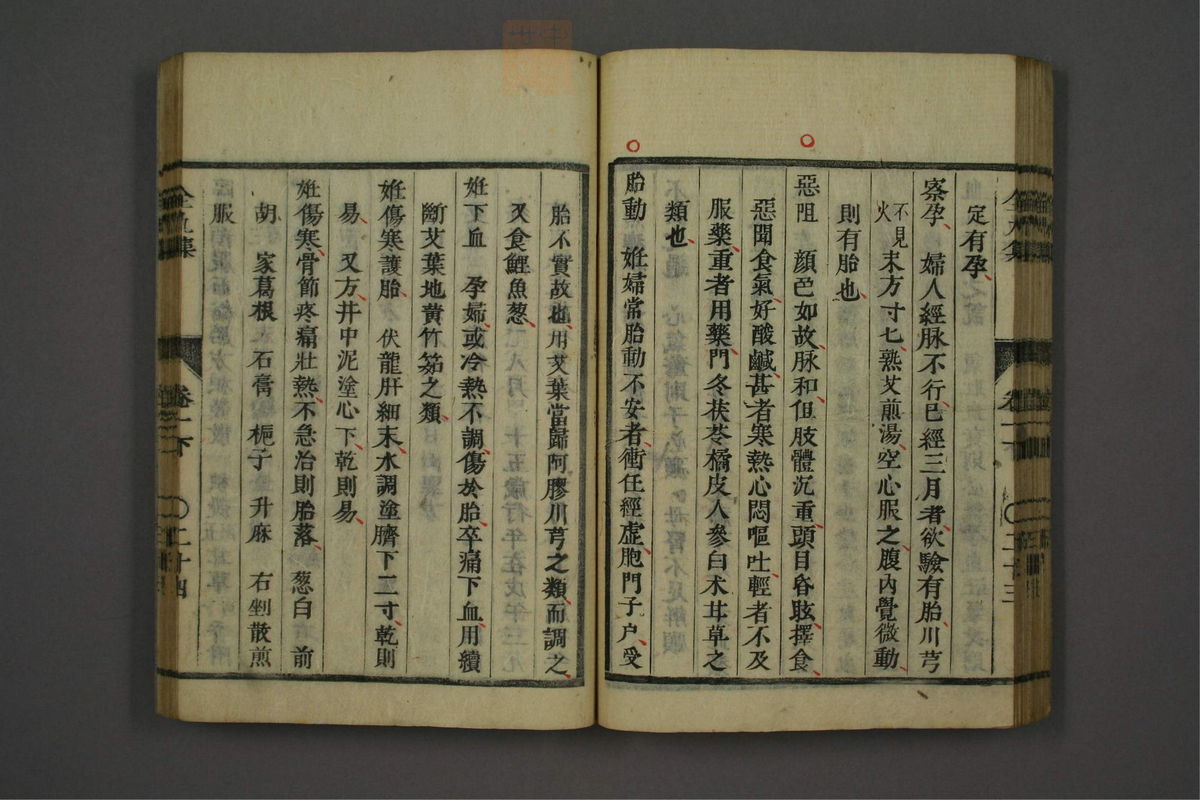 定有孕
察孕 婦人經脉不行已經三月者欲驗有胎川芎
不見
火 末方寸七熟艾煎湯空心服之腹内覺微動
則有胎也
惡阻 顔色如故脉和但肢體沉重頭目昏眩擇食
惡聞食氣好酸鹹甚者寒熱心悶嘔吐輕者不及
服藥重者用藥門冬茯苓橘皮人參白术甘草之
類也
胎動 姙婦常胎動不安者衝任經虛胞門子户受
胎不實故也用艾葉當歸阿膠川芎之類而調之
又食鯉魚葱
姙下血 孕婦或冷熱不調傷於胎卒痛下血用續
斷艾葉地黄竹茹之類
姙傷寒護胎 伏龍肝細末水調塗臍下二寸乾則
易 又方井中泥塗心下乾則易
姙傷寒骨節疼痛壯熱不急治則胎落 葱白 前
胡 家葛根 石膏 梔子 升麻 右剉散煎
服
卷一下 二十三
全九集 卷一下 二十四